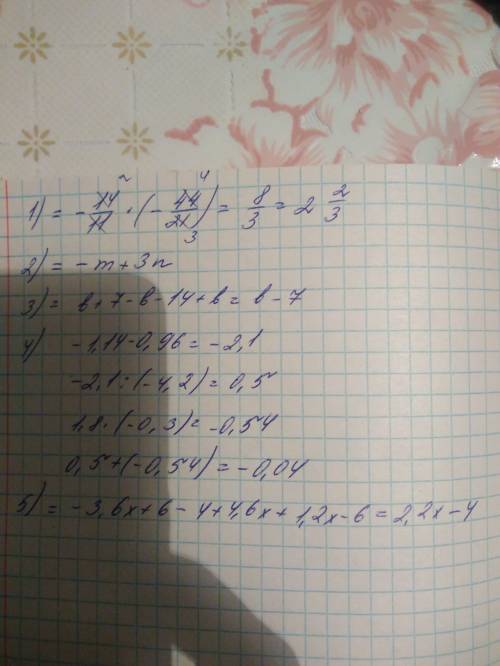 1) = - 14/11 · (- 44/21) = 8/3 = 2 2/3
2) = - m + 3n
3) = b + 7 - b - 14 + b = b - 7
4) - 1,14 - 0,96 = - 2,1
- 2,1 : (- 4,2) = 0,5
1,8 · (- 0,3) = - 0,54
0,5 + (- 0,54) = - 0,04
5) = - 3,6x + 6 - 4 + 4,6x + 1,2x - 6 = 2,2x - 4